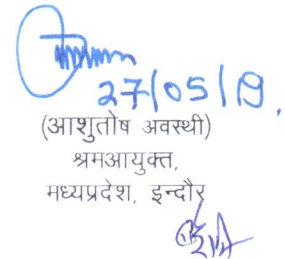 27/05/19.
(आशुतोष अवस्थी)
श्रमआयुक्त,
मध्यप्रदेश, इन्दौर